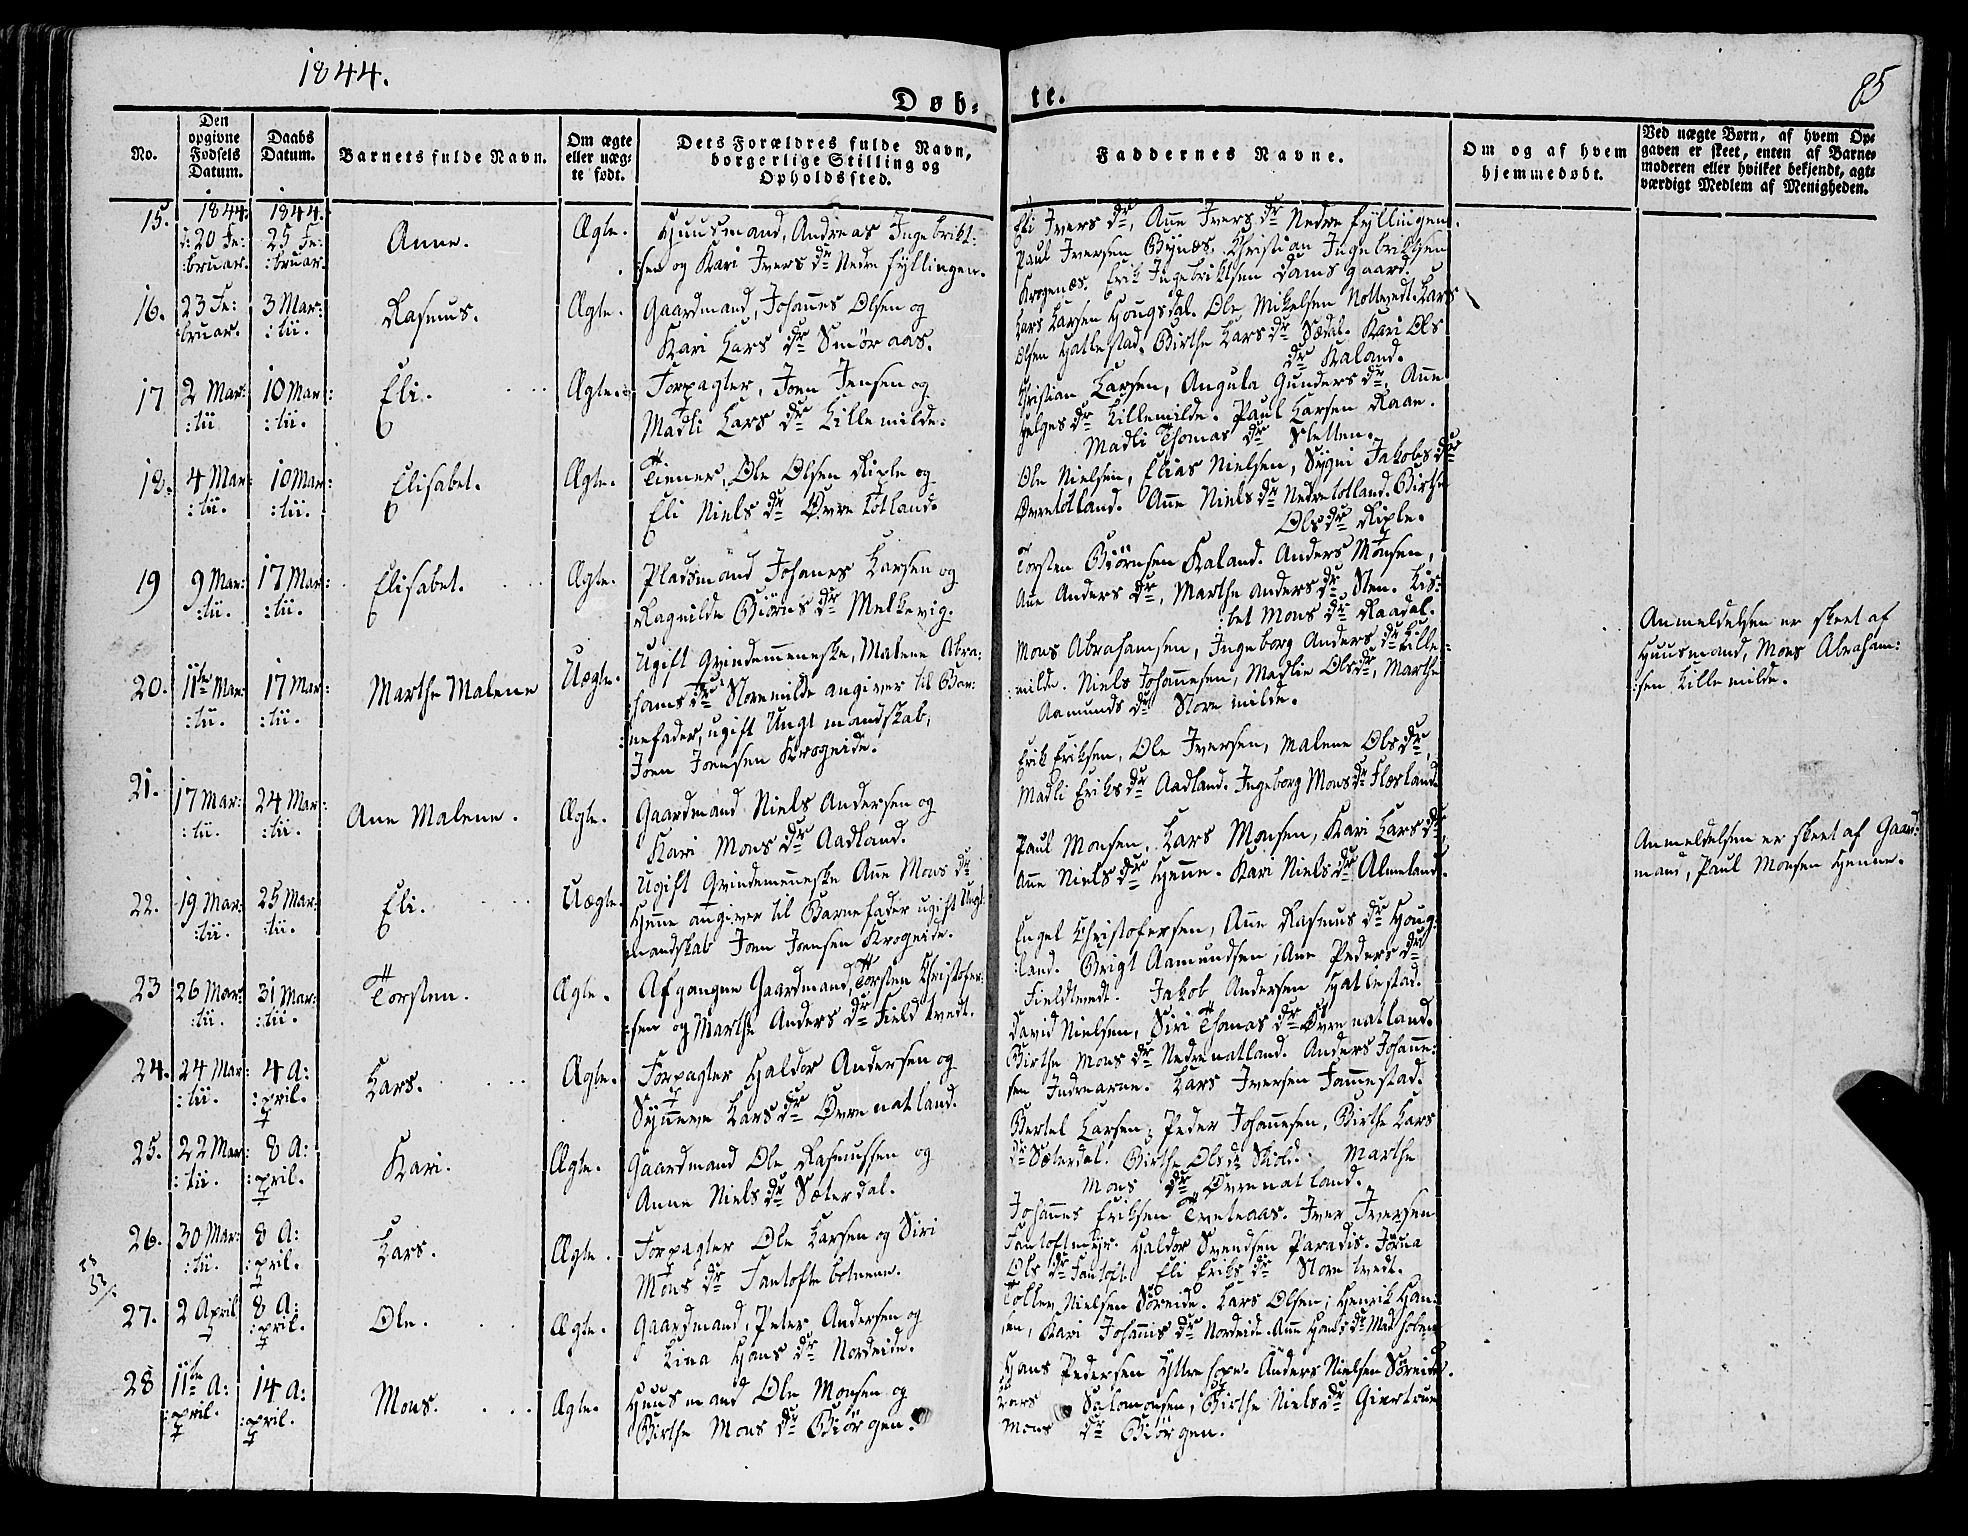 1844.
85
Døb-
te.
No.
Den opgivne Fødsels Datum.
Daabs Datum.
Barnets fulde Navn.
Om ægte eller uæg-te født.
Dets Forældres fulde Navn, borgerlige Stilling og Opholdssted.
Faddernes Navne.
Om og af hvem hjemmedøbt.
Ved uægte Børn, af hvem Op-
gaven er skeet, enten af Barne-
moderen eller hvilket bekjendt, agt-
værdigt Medlem af Menigheden.
15.
1844.
d: 20 Fe:
:bruar.
1844.
25 Fe:
:bruar.
Anne.
Ægte.
Huusmand, Andreas Ingebrikt:
:sen og Kari Ivers dr Nedre fyllingen.
Eli Ivers dr, Ane Ivers dr Nedre fyllingen.
Paul Iversen Bynæs. Christian Ingebriktsen
Krogenæs. Erik Ingebriktsen Damsgaard.
16.
23 Fe:
:bruar.
3 Mar:
:tii.
Rasmus.
Ægte.
Gaardmand, Johanes Olsen og
Kari Lars dr Smøraas.
Lars Larsen Hougsdal. Ole Mikelsen Nottvedt. Lars
Olsen Hatlestad. Birthe Lars dr Sædal. Kari Ols
dr Kaland.
17
2 Mar:
:tii
10 Mar:
:tii.
Eli.
Ægte.
Forpagter, Joen Jensen og
Madli Lars dr Lillemilde:
Christian Larsen, Angula Gunders dr, Ane
Helges dr Lillemilde. Paul Larsen Raae.
Madli Thomas dr Sletten.
18.
4 Mar:
:tii.
10 Mar:
:tii.
Elisabet.
Ægte.
Tiener, Ole Olsen Riple og
Eli Niels dr Øvre totland.
Ole Nielsen, Elias Nielsen, Sygni Jakobs dr
Øvretotland. Ane Niels dr Nedretotland. Birthe
Ols dr Riple.
19
9 Mar:
:tii.
17 Mar:
:tii.
Elisabet.
Ægte.
Pladsmand Johanes Larsen og
Ragnilde Biørns dr Melkevig.
Torsten Biørnsen Kaland. Anders Monsen,
Ane Anders dr, Marthe Anders dr Sten. Lis:
:bet Mons dr Raadal.
20.
11te Mar:
:tii.
17 Mar:
:tii.
Marthe Malene
Uægte.
Ugift Qvindemeneske, Malene Abra:
:hams dr Storemilde angiver til Bar:
:nefader, ugift Ungt mandskab,
Joen Joensen Krogeide.
Mons Abrahamsen, Ingeborg Anders dr Lille:
:milde. Niels Johannesen, Madlie Ols dr, Marthe
Aamunds dr Store milde.
Anmeldelsen er skeet af
Huusmand, Mons Abraham:
:sen Lille milde.
21.
17 Mar:
:tii.
24 Mar:
:tii.
Ane Malene.
Ægte.
Gaardmand Niels Andersen og
Kari Mons dr Aadland.
Erik Eriksen, Ole Iversen, Malene Ols dr,
Madli Eriks dr Aadland. Ingeborg Mons dr Flesland.
22.
19 Mar:
:tii.
25 Mar:
:tii.
Eli.
Uægte.
Ugift Qvindemeneske Ane Mons dr
Hene angiver til Barnefader ugift Ungt
mandskab Joen Joensen Krogeide.
Paul Monsen, Lars Monsen, Kari Lars dr,
Ane Niels dr Hene. Kari Niels dr Almeland.
Anmeldelsen er skeet af Gaard:
mand, Paul Monsen Henne.
23
26 Mar:
:tii.
31 Mar:
:tii.
Torsten.
Ægte.
Afgangne Gaardmand, Torsten Christofer:
:sen og Marthe Anders dr Fieldtvedt.
Engel Christofersen, Ane Rasmus dr Houg:
:land. Brigt Aamundsen, Ane Peders dr
Fieldtvedt. Jakob Andersen Hatlestad.
24.
24 Mar:
:tii.
4 A:
:pril.
Lars.
Ægte.
Forpagter Haldor Andersen og
Syneve Lars dr Øvre natland.
David Nielsen, Siri Thomas dr Øvre natland.
Birthe Mons dr Nedre natland. Anders Johane:
sen Indrearne. Lars Iversen Famestad.
25.
22 Mar:
:tii.
8 A:
:pril.
Kari.
Ægte.
Gaardmand Ole Rasmussen og
Anne Niels dr Sæterdal.
Bertel Larsen, Peder Johannesen, Birthe Lars
dr Sæterdal. Birthe Ols dr Skiold. Marthe
Mons dr Øvre natland.
26.
30 Mar:
:tii.
8 A:
:pril.
Lars.
Ægte.
Forpagter Ole Larsen og Siri
Mons dr Fantoftebotnene.
Johanes Eriksen Tveteraas. Iver Iversen
Fantoftmyr. Haldor Svendsen Paradis.
Ols dr Fantoft. Eli Eriks dr Storetvedt.
27.
2 April
8 A:
:pril.
Ole.
Ægte.
Gaardmand, Peter Andersen og
Lina Hans dr Nordeide.
Nielsen Søreide. Lars Olsen, Henrik Han:
sen, Kari Johanis dr Nordeide. Ane Hans dr
28
11te A:
:pril.
14 A:
:pril.
Mons.
Ægte.
Huusmand Ole Monsen og
Birthe Mons dr Biørgen.
Hans Pedersen Anders Nielsen Søreide.
Lars Salomonsen, Birthe Niels dr
Mons dr Biørgen.